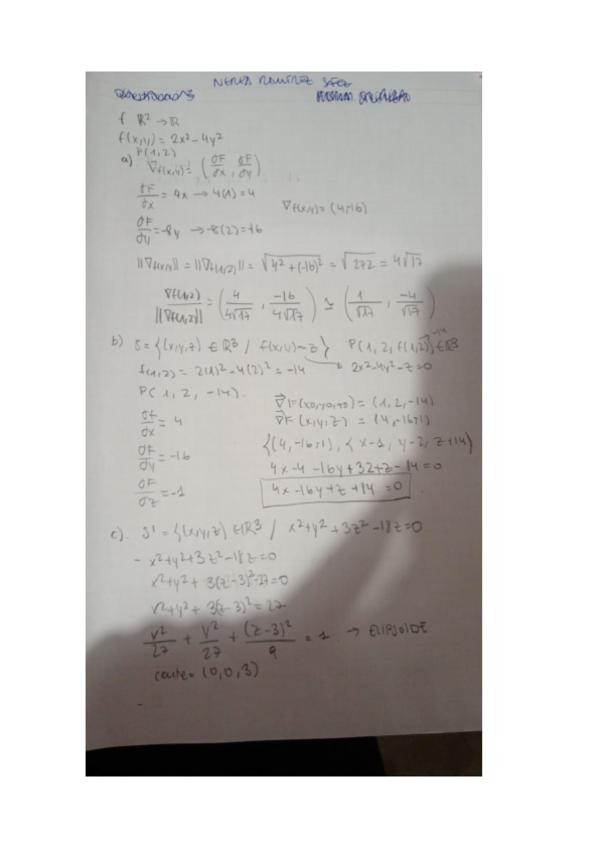 f R² → R
f(x,y) = 2x² - 4y²
P(1,2)
a) ∇f(x,y) = (∂F/∂x, ∂F/∂y)
∂F/∂x = 4x → 4(1) = 4
∇f(x,y) = (4,-16)
∂F/∂y = -8y → -8(2) = -16
||∇f(x,y)|| = ||∇f(1,2)|| = √4² + (-16)² = √272 = 4√17
∇f(1,2)/||∇f(1,2)|| = (4/4√17, -16/4√17) ≃ (1/√17, -4/√17)
b) S = {(x,y,z) ∈ R3 / f(x,y) = z} P(1, 2, f(1,2)) ∈ R3
-14
f(1,2) = 2(1)² - 4(2)² = -14 2x² - 4y² - z = 0
P(1, 2, -14).
∂F/∂x = 4
(x0,y0,z0) = (1, 2, -14)
∇F(x,y,z) = (4,-16,1)
∂F/∂y = -16
{(4,-16,1), (x-1, y-2, z+14)
4x - 4 - 16y + 32 + z - 14 = 0
∂F/∂z = -1
4x - 16y + z + 14 = 0
c). S' = {(x,y,z) ∈ R3 / x² + y² + 3z² - 18z = 0
- x² + y² + 3z² - 18z = 0
x² + y² + 3(z-3)² - 27 = 0
x² + y² + 3(z-3)² = 27
x²/27 + y²/27 + (z-3)²/9 = 1 → ELIPSOIDE
= (0,0,3)
-